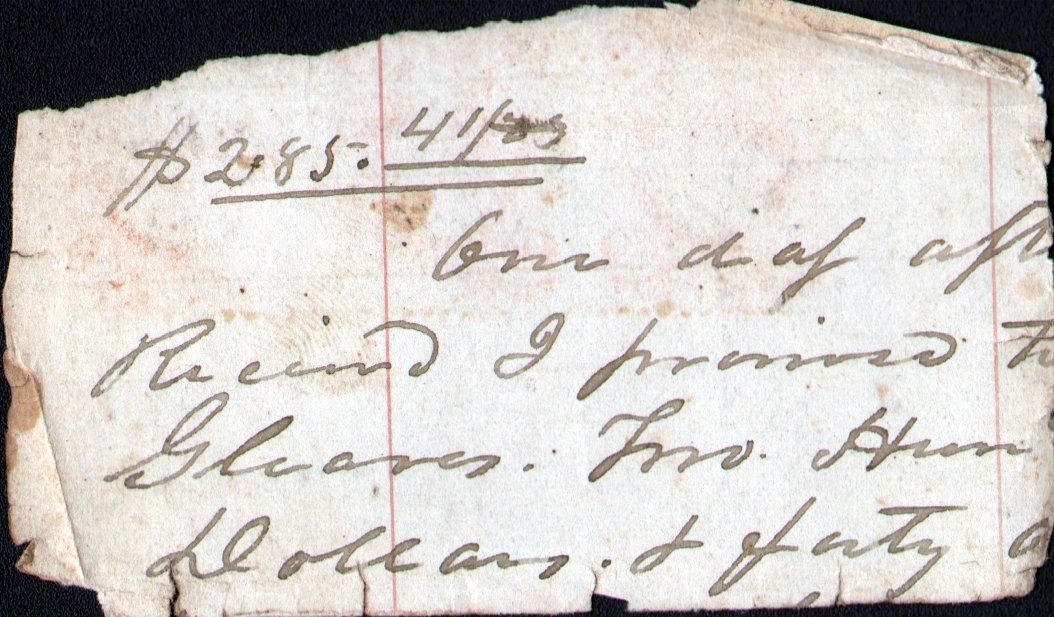 $285. 41/
One day aft
Received I promised to
Gleaves. Two. Hun
Dollars. & forty